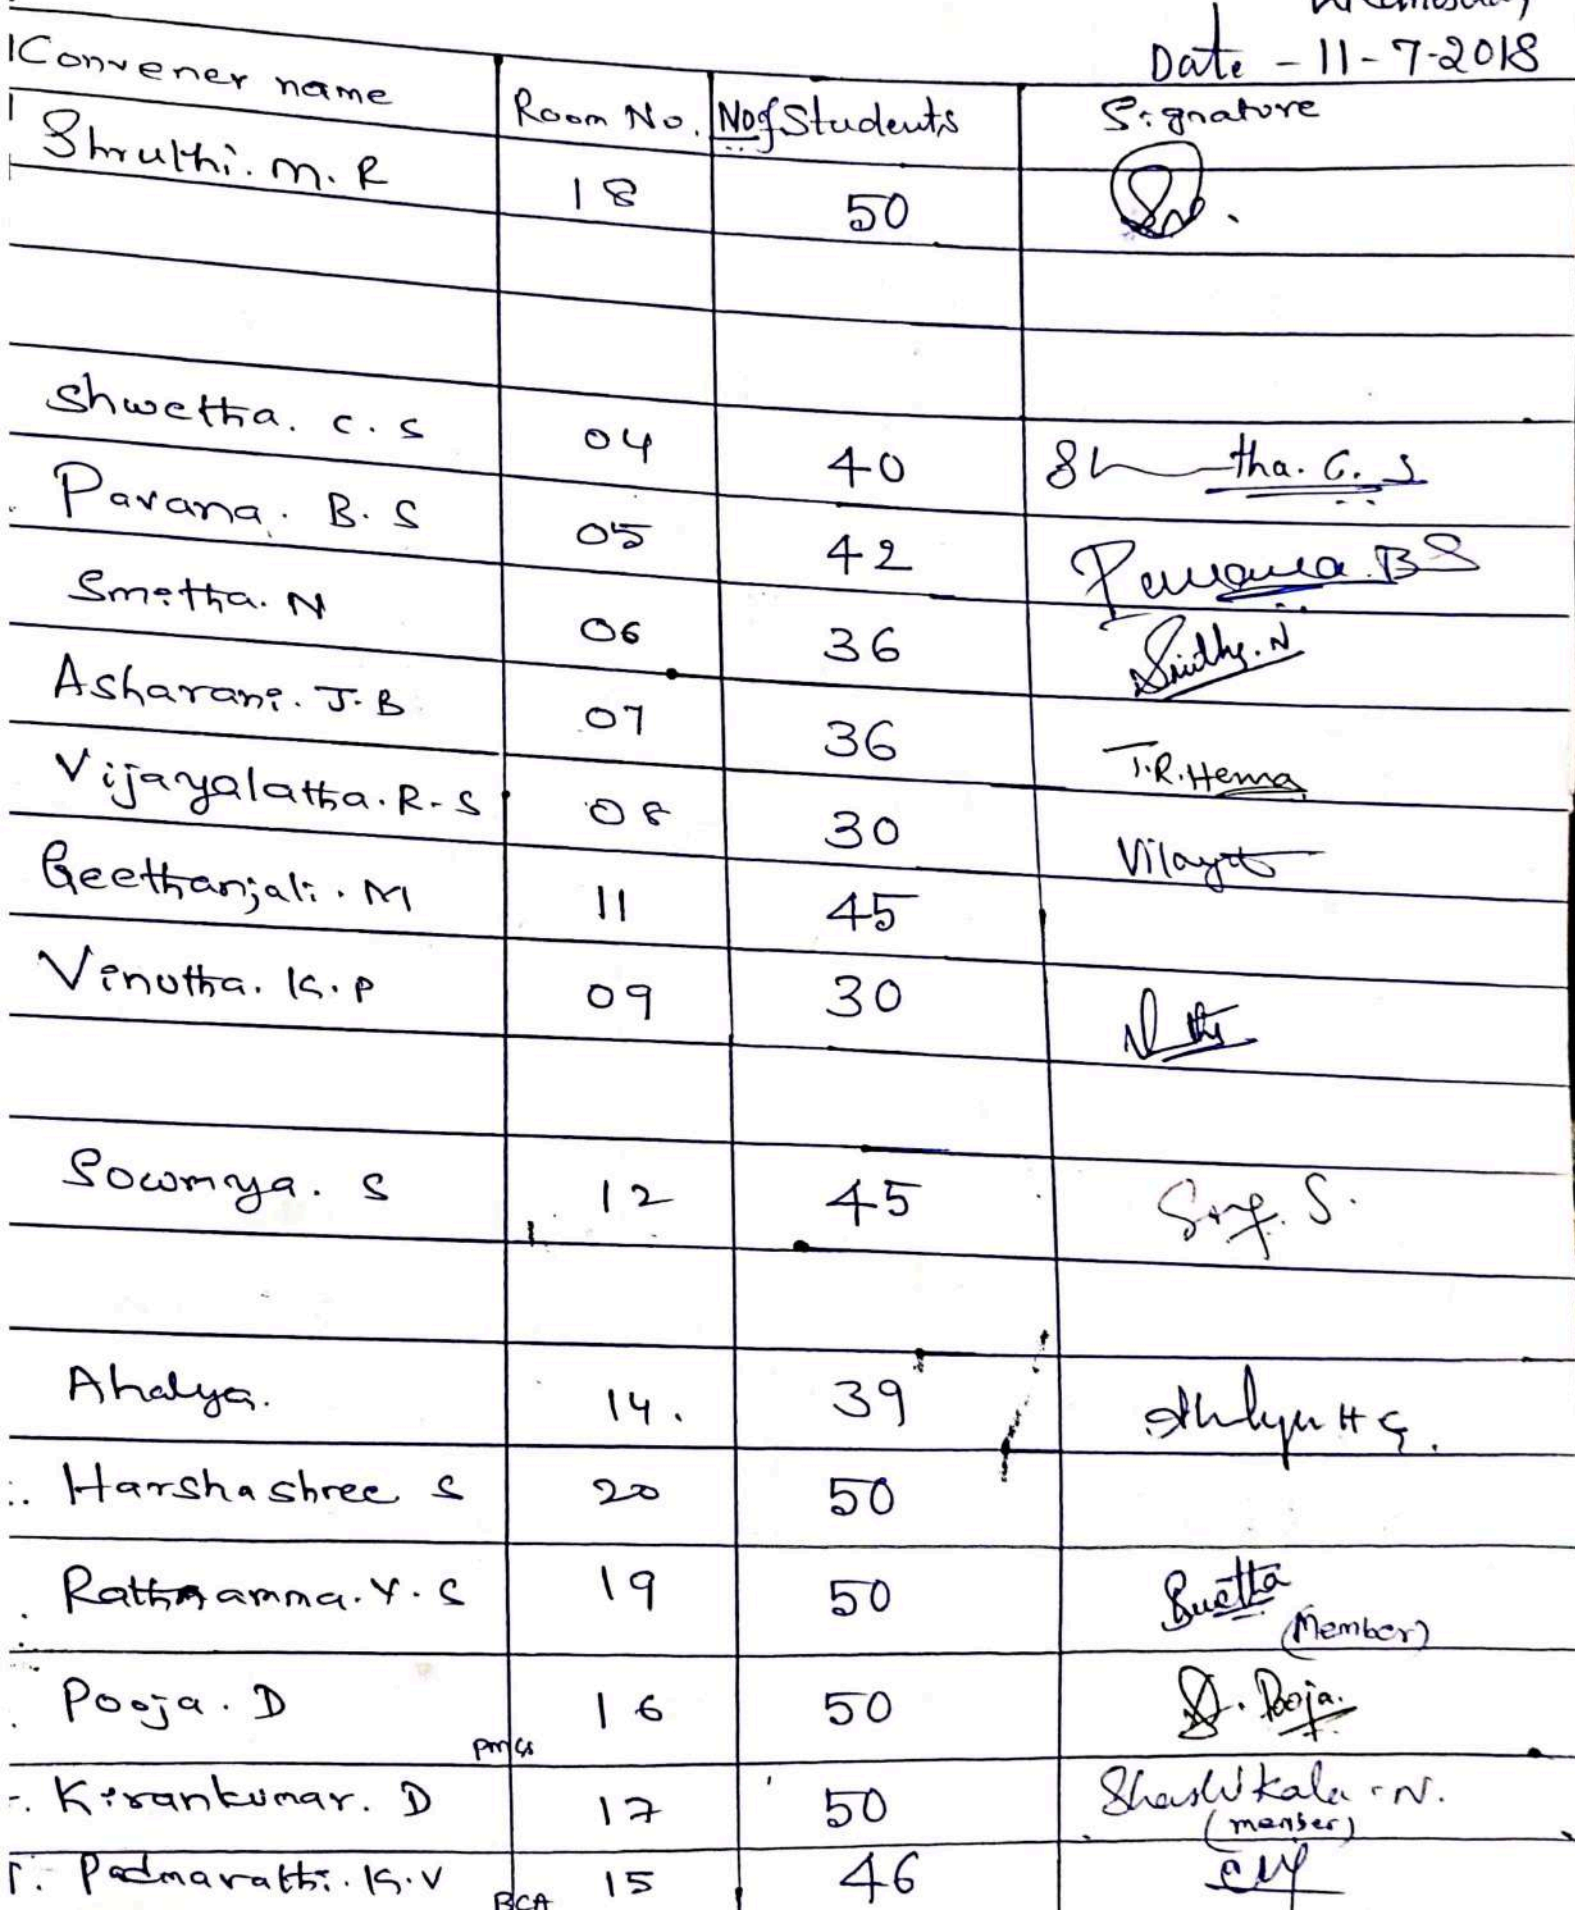 Wednesday
Date - 11-7-2018
Convener name Room No. No of Students Signature
Shruthi. M. R 18 50
Shwetha. C. S 04 40 Sh tha. C. S
Pavana. B. S 05 42 Pavana. B S
Smitha. N 06 36
Asharani. J. B 07 36 T.R. Hema
Vijayalatha. R. S 08 30
Geethanjali. M 11 45
Vinutha. K. P 09 30
Sowmya. S 12 45
Ahalya. 14. 39 Ahalya H G.
Harshashree S 20 50
Rathnamma. Y. S 19 50
(Member)
Pooja. D 16 50 D. Pooja.
Kirankumar. D 17 50 Shashikala. N.
(member)
Padmavathi. K. V BCA 15 46